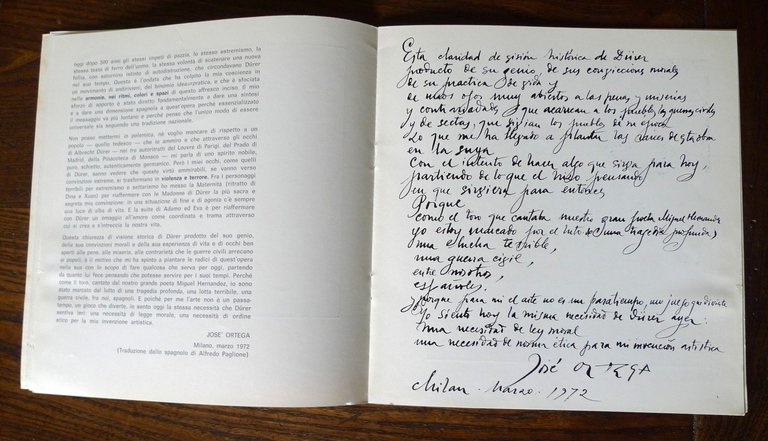 oggi dopo 500 anni gli stessi impeti di pazzia, lo stesso estremismo, la
stessa testa di ferro dell'uomo, la stessa volontà di scatenare una nuova
follia, con saturnino istinto di autodistruzione, che circondavano Dürer
nel suo tempo. Questa è l'ondata che ha colpito la mia coscienza in
un movimento di andirivieni, del binomio idea-pratica, e che ha creato
di questo affresco inciso il mio
armonie, nei ritmi, colori e spazi
sforzo di apporto è stato diretto fondamentalmente a dare una sintesi
e a dare una dimensione spagnola a quest'opera perché essenzializzato
il messaggio va più lontano e perché penso che l'unico modo di essere
universale sia seguendo una tradizione nazionale.
Non posso mettermi in polemica, né voglio mancare di rispetto a un
popolo — quello tedesco — che io ammiro e che attraverso gli occhi
di Albrecht Dürer — nei tre autoritratti del Louvre di Parigi, del Prado di
Madrid, della Pinacoteca di Monaco — mi parla di uno spirito nobile,
puro, schietto, autenticamente germanico. Però i miei occhi, come quelli
di Dürer, sanno vedere che queste virtù ammirabili, se vanno verso
convinzioni estreme, si trasformano in violenza e terrore. Fra i personaggi
terribili per estremismo e settarismo ho messo la Maternità (ritratto di
Dina e Xuan) per riaffermare con le Madonne di Dürer la più sacra e
segreta mia convinzione: in una situazione di fine e di agonia c'è sempre
una luce di alba di vita. E la suite di Adamo ed Eva è per riaffermare
con Dürer un omaggio all'amore come coordinata e trama attraverso
cui si crea e s'intreccia la nostra vita.
Questa chiarezza di visione storica di Dürer prodotto del suo genio,
delle sue convinzioni morali e della sua esperienza di vita e di occhi ben
aperti alle pene, alle miserie, alle contrarietà che le guerre civili arrecano
ai popoli, è il motivo che mi ha spinto a piantare le radici di quest'opera
nella sua con lo scopo di fare qualcosa che serva per oggi, partendo
da quanto lui fece pensando che potesse servire per i suoi tempi. Perché
come il toro, cantato dal nostro grande poeta Miguel Hernandez, io sono
stato marcato dal lutto di una tragedia profonda, una lotta terribile, una
guerra civile, fra noi, spagnoli. E poiché per me l'arte non è un passa-
tempo, un gioco che diverte, io sento oggi la stessa necessità che Dürer
sentiva ieri: una necessità di legge morale, una necessità di ordine
etico per la mia invenzione artistica.
JOSE' ORTEGA
Milano, marzo 1972
(Traduzione dallo spagnolo di Alfredo Paglione)
Esta claridad de visión histórica de Dürer
producto de su genio, de sus convicciones morales
de su practica de vida y
de unos ojos muy abiertos a las penas y miserias
y contrariedades que acarrean a los pueblos las guerras civiles
y de sectas, que vivian los pueblos de su época
Lo que me ha llevado a plantar las raices de esta obra
en la suya
con el intento de hacer algo que sirva para hoy,
partiendo de lo que el hizo pensando
en que sirviera para entonces
Porque
como el toro que cantaba nuestro gran poeta Miguel Hernandez
yo estoy marcado por el luto de una tragedia profunda
una lucha terrible,
una guerra civil,
entre nosotros,
españoles.
y porque para mi el arte no es un pasatiempo, un juego que divierte
Yo siento hoy la misma necesidad de Dürer ayer:
una necesidad de ley moral
una necesidad de norma ética para mi invención artistica
José ORTEGA
Milan - marzo - 1972